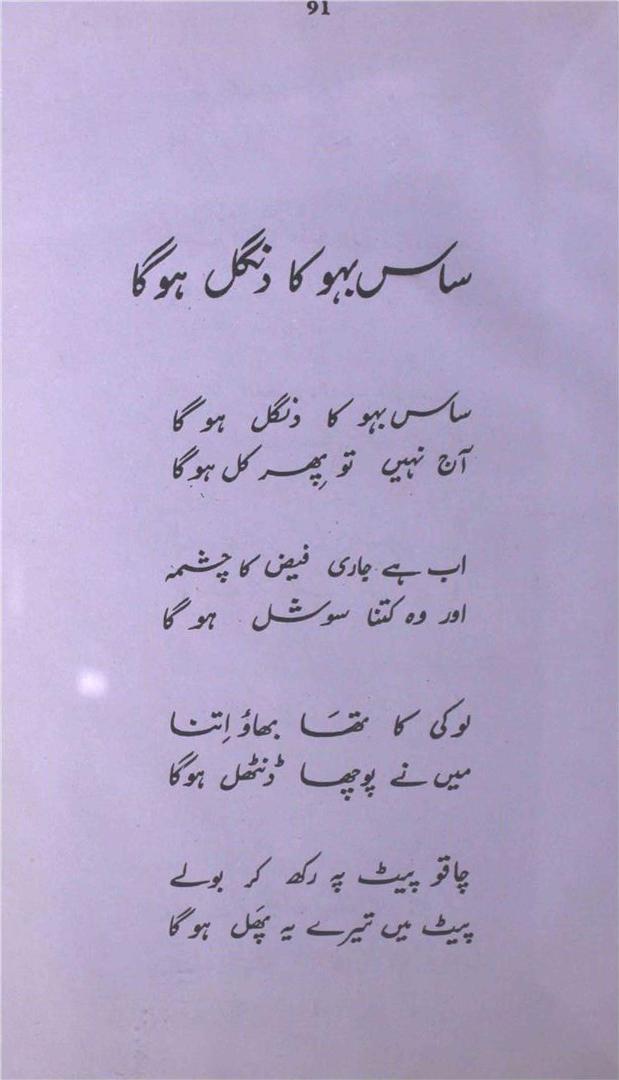 91
ساس بہو کا دنگل ہوگا
ساس بہو کا دنگل ہو گا
آج نہیں تو پھر کل ہو گا
اب ہے جاری فیض کا چشمہ
اور وہ کتنا سوشل ہو گا
لوکی کا تھَا بھاؤ اِتنا
میں نے پوچھا ڈنٹھل ہوگا
چاقو پیٹ پہ رکھ کر بولے
پیٹ میں تیرے یہ پھَل ہو گا